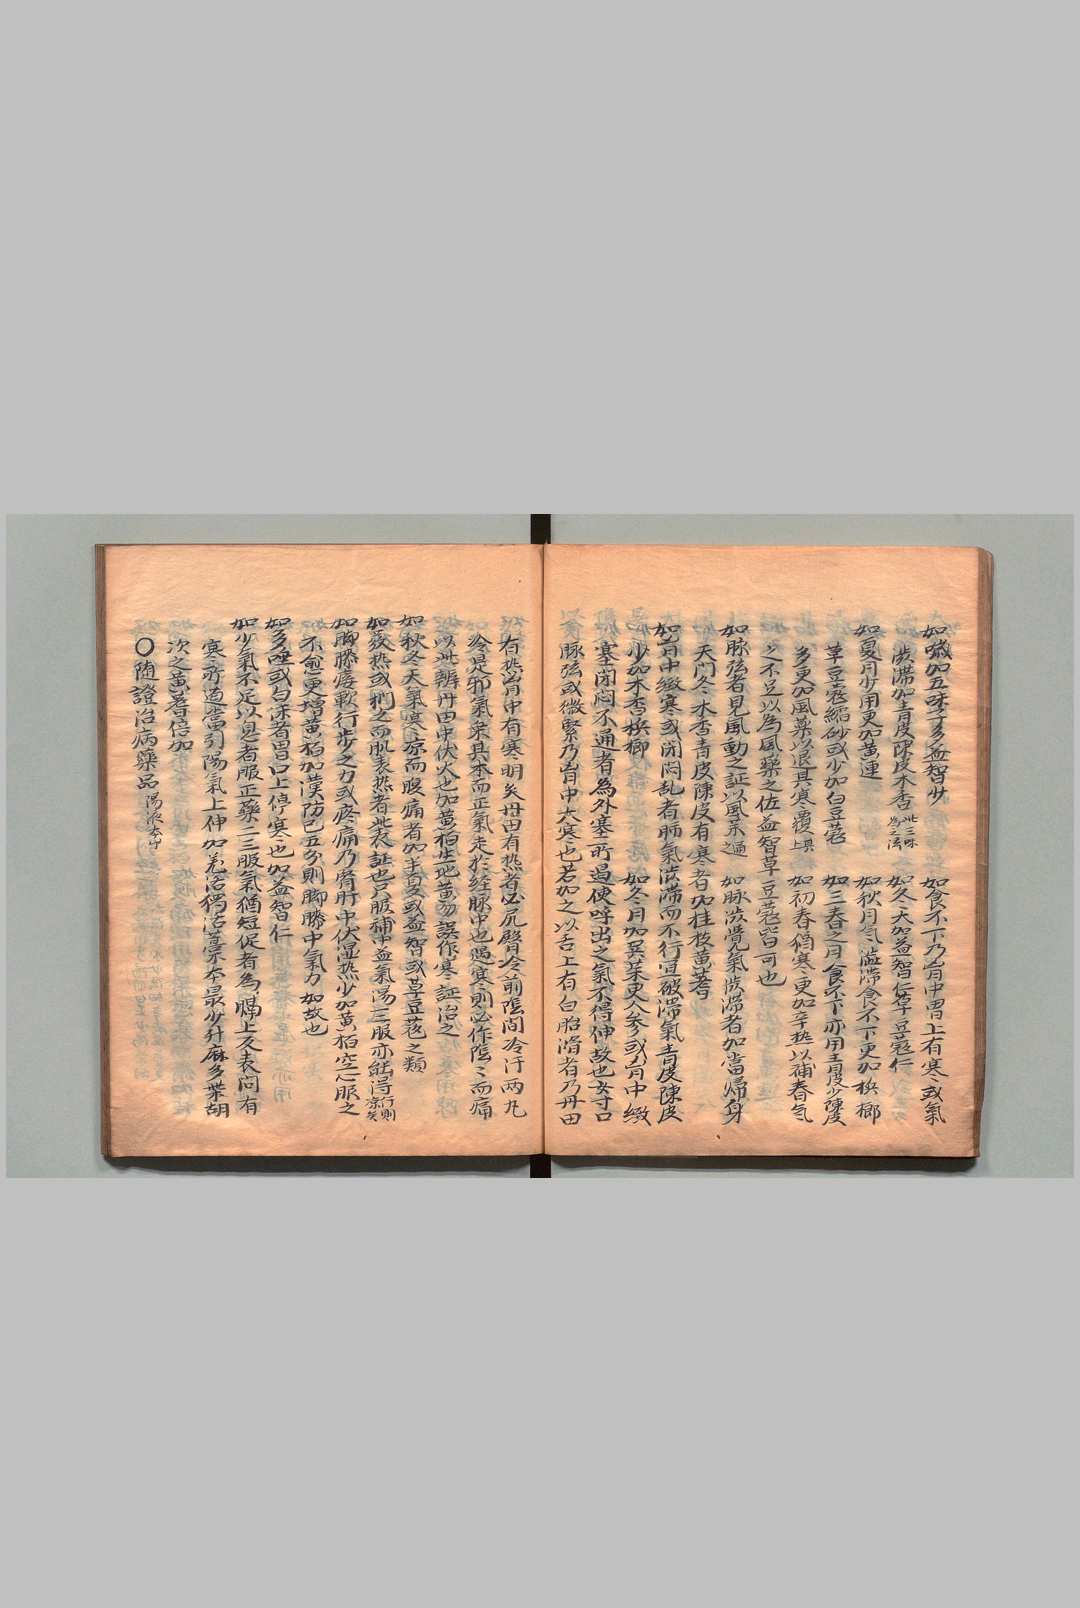 如嗽加五味子多益智少
如食不下乃胷中胃上有寒或氣
澁滯加青皮陳皮木香此三味為之法
如冬天加益智仁草豆蔻仁
如夏月少用更加黃連
如秋月气澁滯食不下更加梹榔
草豆蔻縮砂或少加白豆蔻
如三春之月食不下亦用青皮少陳皮
多更加風藥以退其寒覆上與
如初春猶寒更加辛热以補春气
之不足以為風藥之佐益智草豆蔻皆可也
如脉弦者見風動之証以風藥之通
如脉澁覺氣澁滯者加當歸身
天門冬木香青皮陳皮有寒者加桂枝黃蓍
如胷中緻寒或閉悶乱者肺氣澁滯而不行宜破滯氣青皮陳皮
少加木香梹榔
如冬月加吴茱更人参或胷中緻
塞閉悶不通者為外寒所遏使呼出之氣不得伸故也女寸口
脉弦或微緊乃胷中大寒也若加之以舌上有白胎滑者乃丹田
有热胷中有寒明矣丹田有热者必尻臀冷前陰間冷汗两丸
冷是邪氣乗其本而正氣走於経脉中也遇寒則必作陰〻而痛
以此辨丹田中伏火也加黄栢生地黄勿誤作寒証治之
如秋冬天氣寒凉而腹痛者加半夏或益智或草豆蔻之類
如發热或捫之而肌表热者此表証也只服補中益氣湯三服亦能得汗則凉矣
如脚膝痿軟行歩之力或疼痛乃腎肝中伏湿热少加黄栢空心服之
不愈更增黄栢加漢防已五分則脚膝中氣力如故也
如多唾或白沫者胃口上停寒也加益智仁
如少氣不足以息者服正藥二三服氣猶短促者為膈上及表间有
寒所遏當引陽氣上伸加羌活獨活藁本最少升麻多柴胡
次之黃蓍倍加
〇随證治病藥品湯液本中